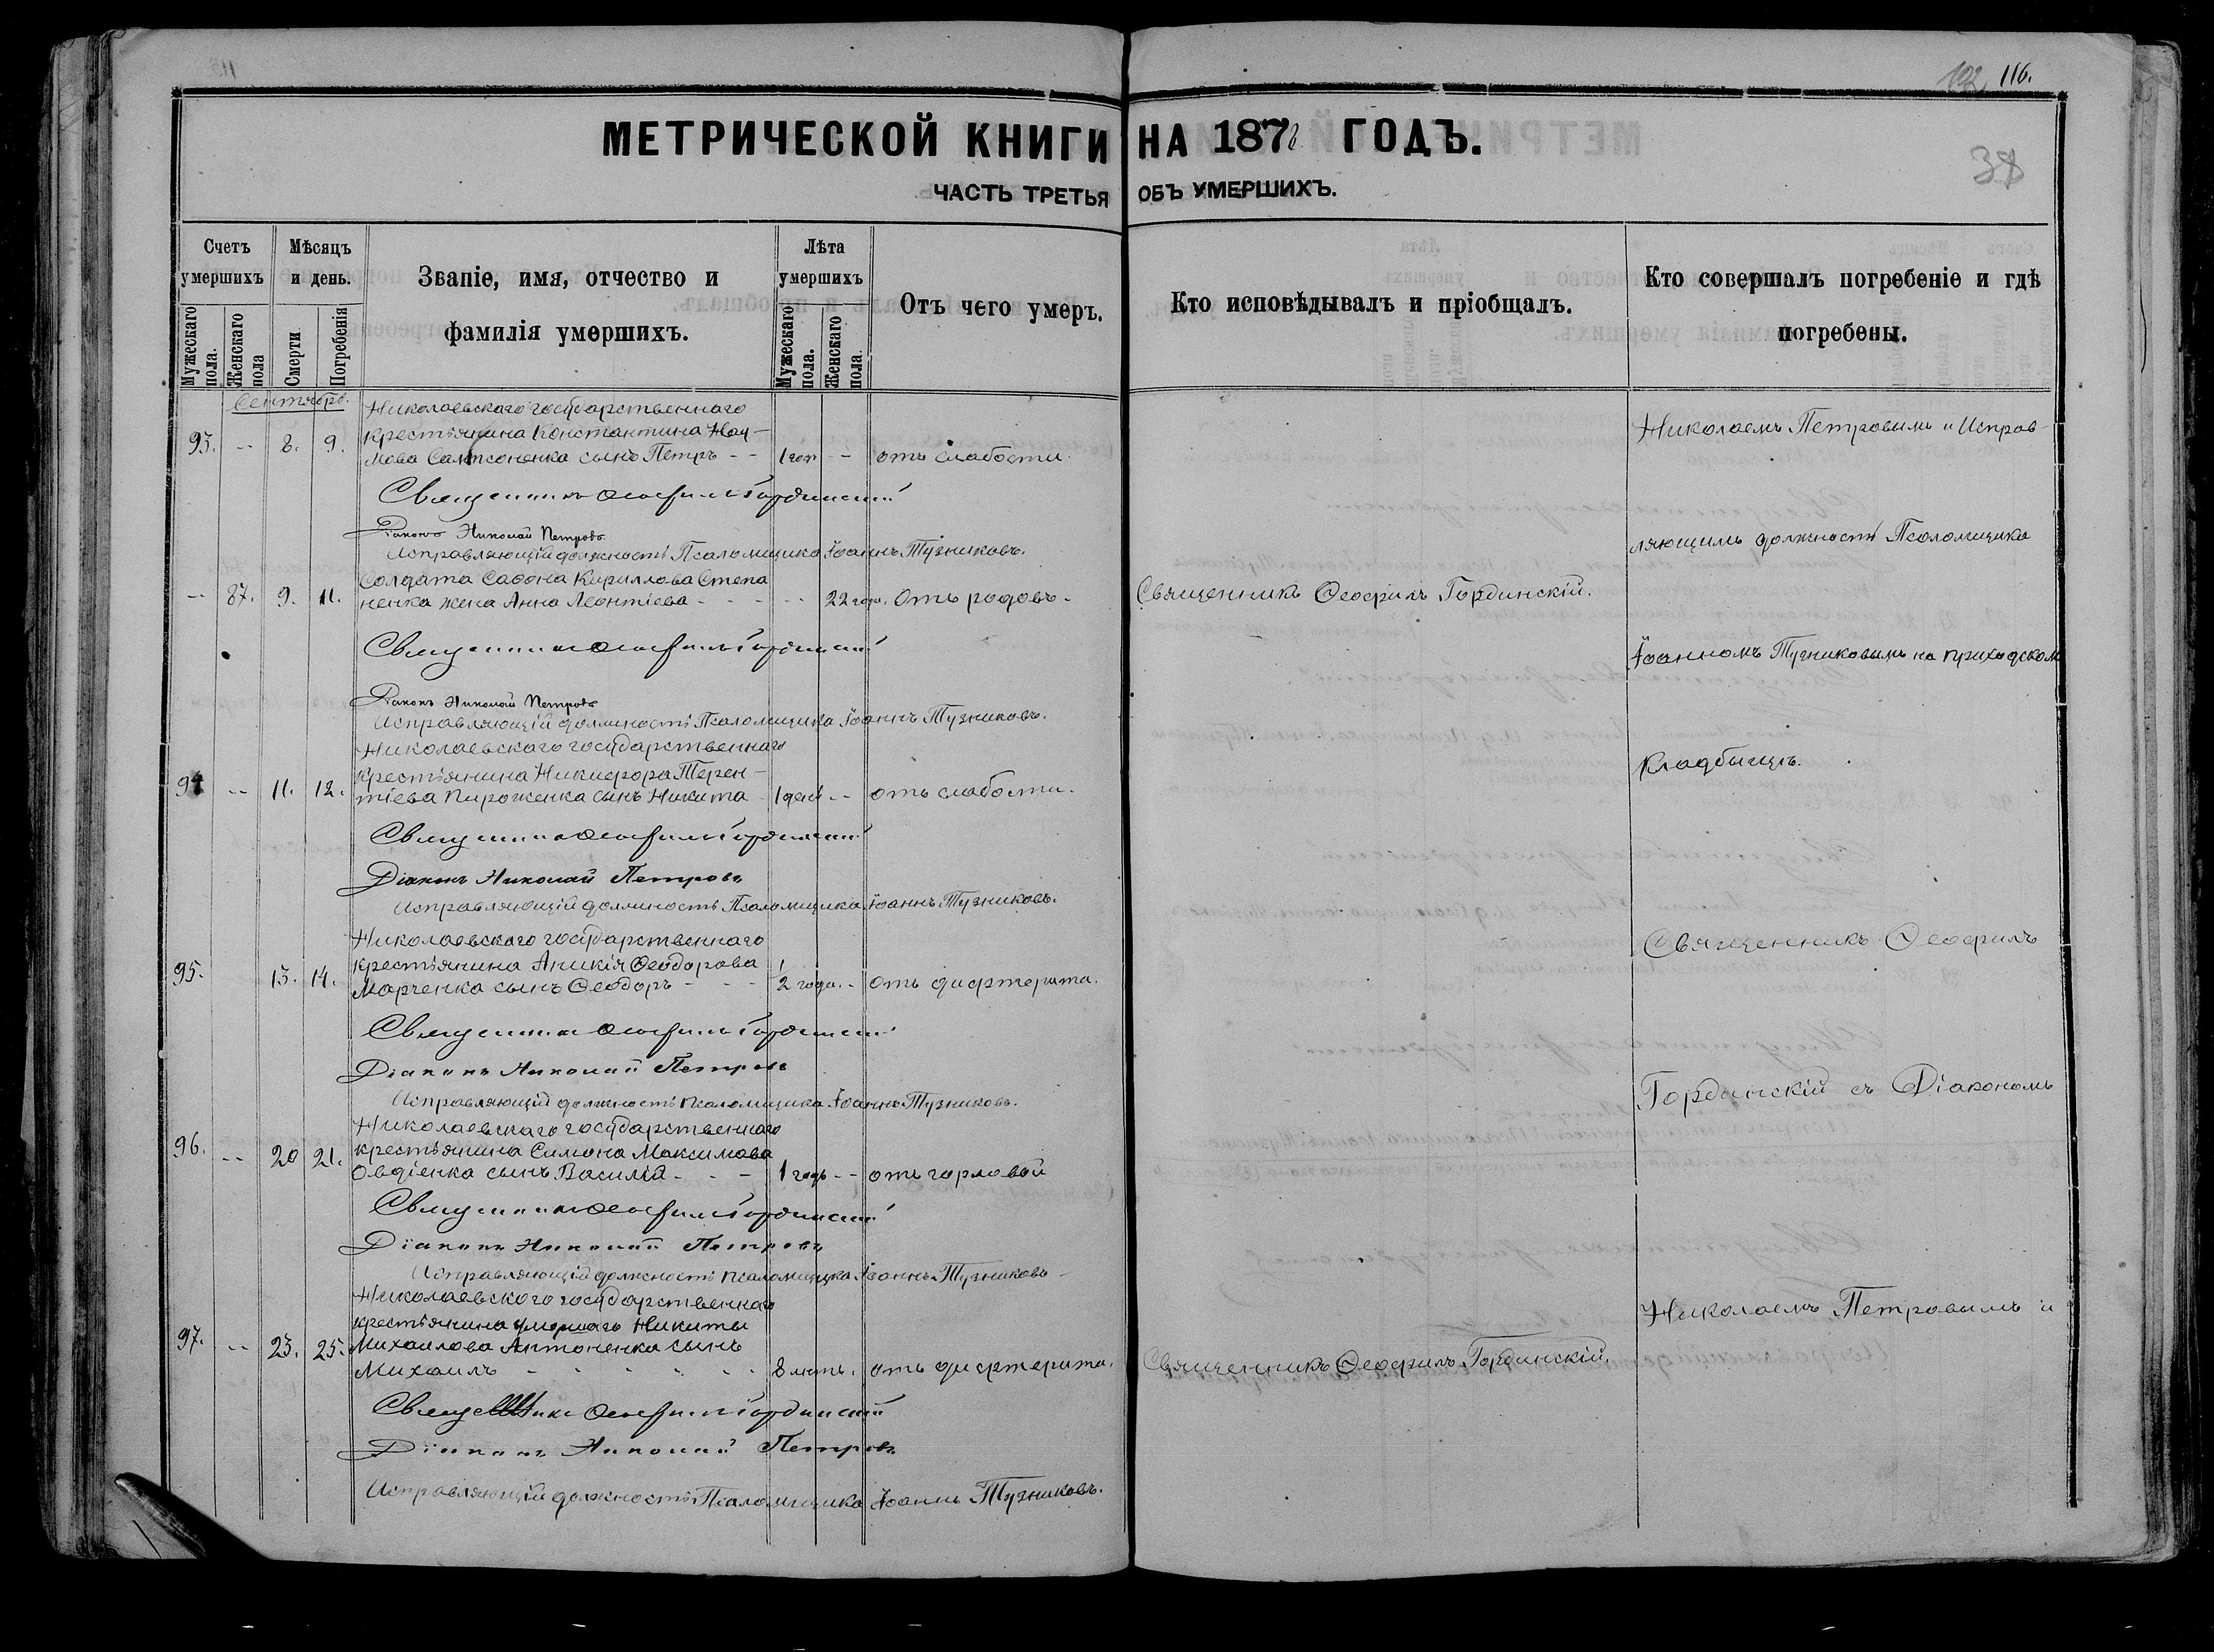 115
192 116.
МЕТРИЧЕСКОЙ КНИГИ НА 1878 ГОДЪ.
38
ЧАСТЬ ТРЕТЬЯ ОБЪ УМЕРШИХЪ.
Счетъ умершихъ
Мужескаго пола.
Женскаго пола
Мѣсяцъ и день.
Смерти
Погребенія
Званіе, имя, отчество и фамилія умершихъ.
Лѣта умершихъ
Мужескаго пола.
Женскаго пола.
Отъ чего умеръ.
Кто исповѣдывалъ и пріобщалъ.
Кто совершалъ погребеніе и гдѣ погребены.
Сентябрь.
Николаевскаго государственнаго
крестьянина Константина
93. -- 8. 9. Самсоненка сынъ Петръ -- 1 годъ - отъ слабости.
Священникъ Ѳеофилъ Гординскій
Діаконъ Николай Петровъ
Исправляющій должность Псаломщика Іоаннъ Тузниковъ.
Солдата Савона Кириллова Степа
-- 87. 9. 11. ненка жена Анна Леонтіева - - - 22 года. Отъ родовъ - Священникъ Ѳеофилъ Гординскій.
Священникъ Ѳеофилъ Гординскій
Діаконъ Николай Петровъ
Исправляющій должность Псаломщика Іоаннъ Тузниковъ.
Николаевскаго государственнаго
крестьянина Никифора Терен-
94 -- 11. 12. тіева Пироженка сынъ Никита 1 день -- отъ слабости.
Священникъ Ѳеофилъ Гординскій
Діаконъ Николай Петровъ
Исправляющій должность Псаломщика Іоаннъ Тузниковъ.
Николаевскаго государственнаго
крестьянина Аникія Ѳеодорова
95. 13. 14. Марченка сынъ Ѳеодоръ - - - 2 года. - отъ дифтерита.
Священникъ Ѳеофилъ Гординскій
Діаконъ Николай Петровъ
Исправляющій должность Псаломщика Іоаннъ Тузниковъ.
Николаевскаго государственнаго
крестьянина Симона Максимова
96. -- 20 21. Овдіенка сынъ Василій - - - 1 годъ -- отъ горловой
Священникъ Ѳеофилъ Гординскій
Діаконъ Николай Петровъ
Исправляющій должность Псаломщика Іоаннъ Тузниковъ
Николаевскаго государственнаго
крестьянина умершаго Никиты
97. -- 23. 25. Михаилова Антоненка сынъ
Михаилъ - - - - - 8 лѣтъ. отъ дифтерита. Священникъ Ѳеофилъ Гординскій.
Священникъ Ѳеофилъ Гординскій
Діаконъ Николай Петровъ
Исправляющій должность Псаломщика Іоаннъ Тузниковъ.
Николаемъ Петровымъ и Исправ-
ляющимъ должность Псаломщика
Іоанномъ Тузниковымъ на приходскомъ
кладбищѣ.
Священникъ Ѳеофилъ
Гординскій съ Діакономъ
Николаемъ Петровымъ и